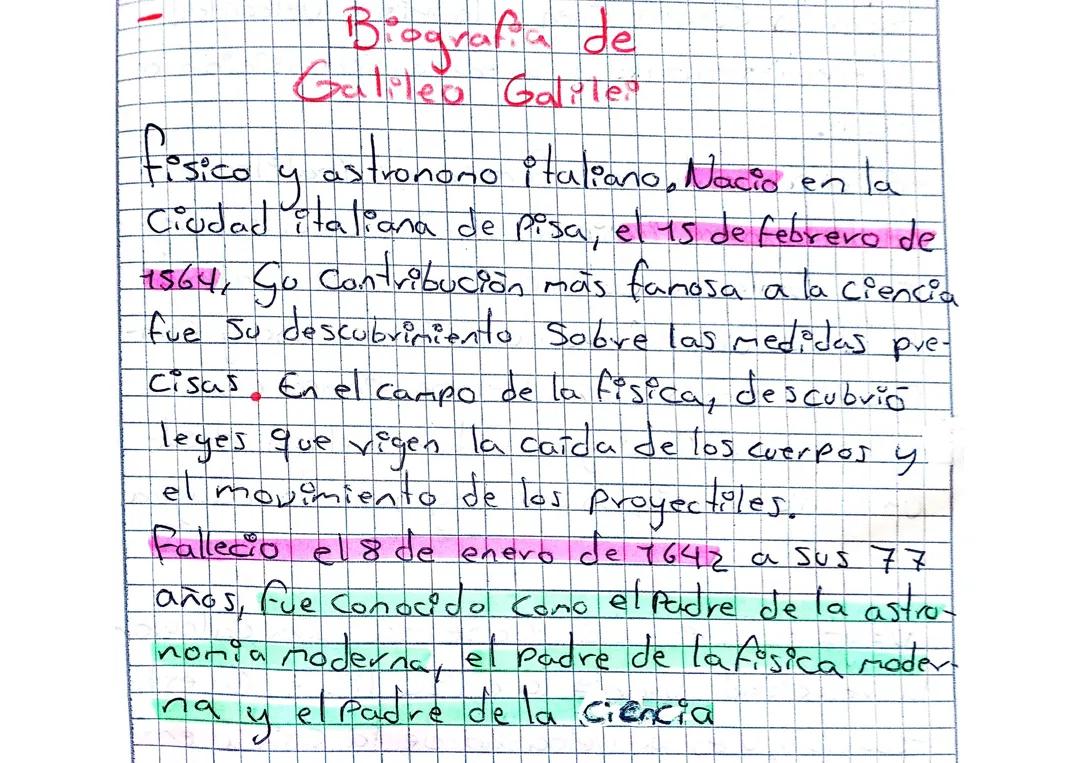 Biografía de
Galileo Galilei
físico y astronomo italiano, Nació en la
ciudad italiana de pisa, el 15 de febrero de
1564, So contribución más famosa a la ciencia
fue su descubrimiento sobre las medidas pre-
cisas. En el campo de la física, descubrió
leyes que rigen la caída de los cuerpos y
el movimiento de los proyectiles.
Falleció el 8 de enero de 1642 a sus 77
años, fue conocido como el Padre de la astro-
nomía moderna, el padre de la física moder-
na y el Padre de la ciencia